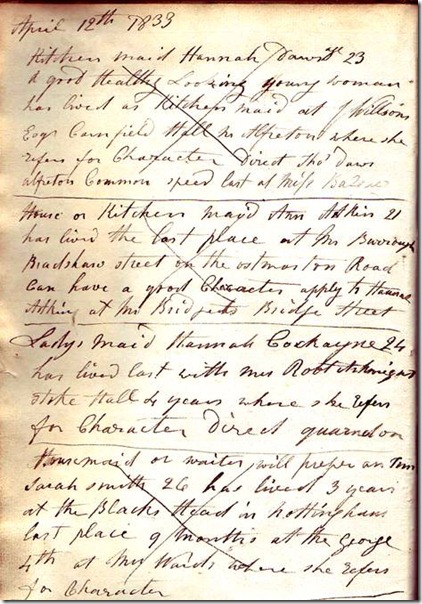 April 12th 1833
Kitchen maid Hannah Daws 23
A good Healthy Looking young woman
has lived as Kitchen maid at J Willsons
Esqr Carnfield Hall nr Alfreton where she
refers for Character Direct Thos Daws
Alfreton Common last at Miss
House or Kitchen maid Ann Adkin 21
has lived the last place at Mrs
Bradshaw street on the osmaston Road
Can have a good Character apply to Hannah
Adkins at Mr Bridge Street
Ladys maid Hannah Cockayne 24
has lived last with mrs Robt Arkwright
Stoke Hall 4 years where she refers
for Character Direct quarndon
Housemaid or waiter will prefer an Inn
Sarah smith 26 has lived 3 years
at the Blacks Head in nottingham
last place 9 months at the George
4th at Mr Wards where she refers
for Character